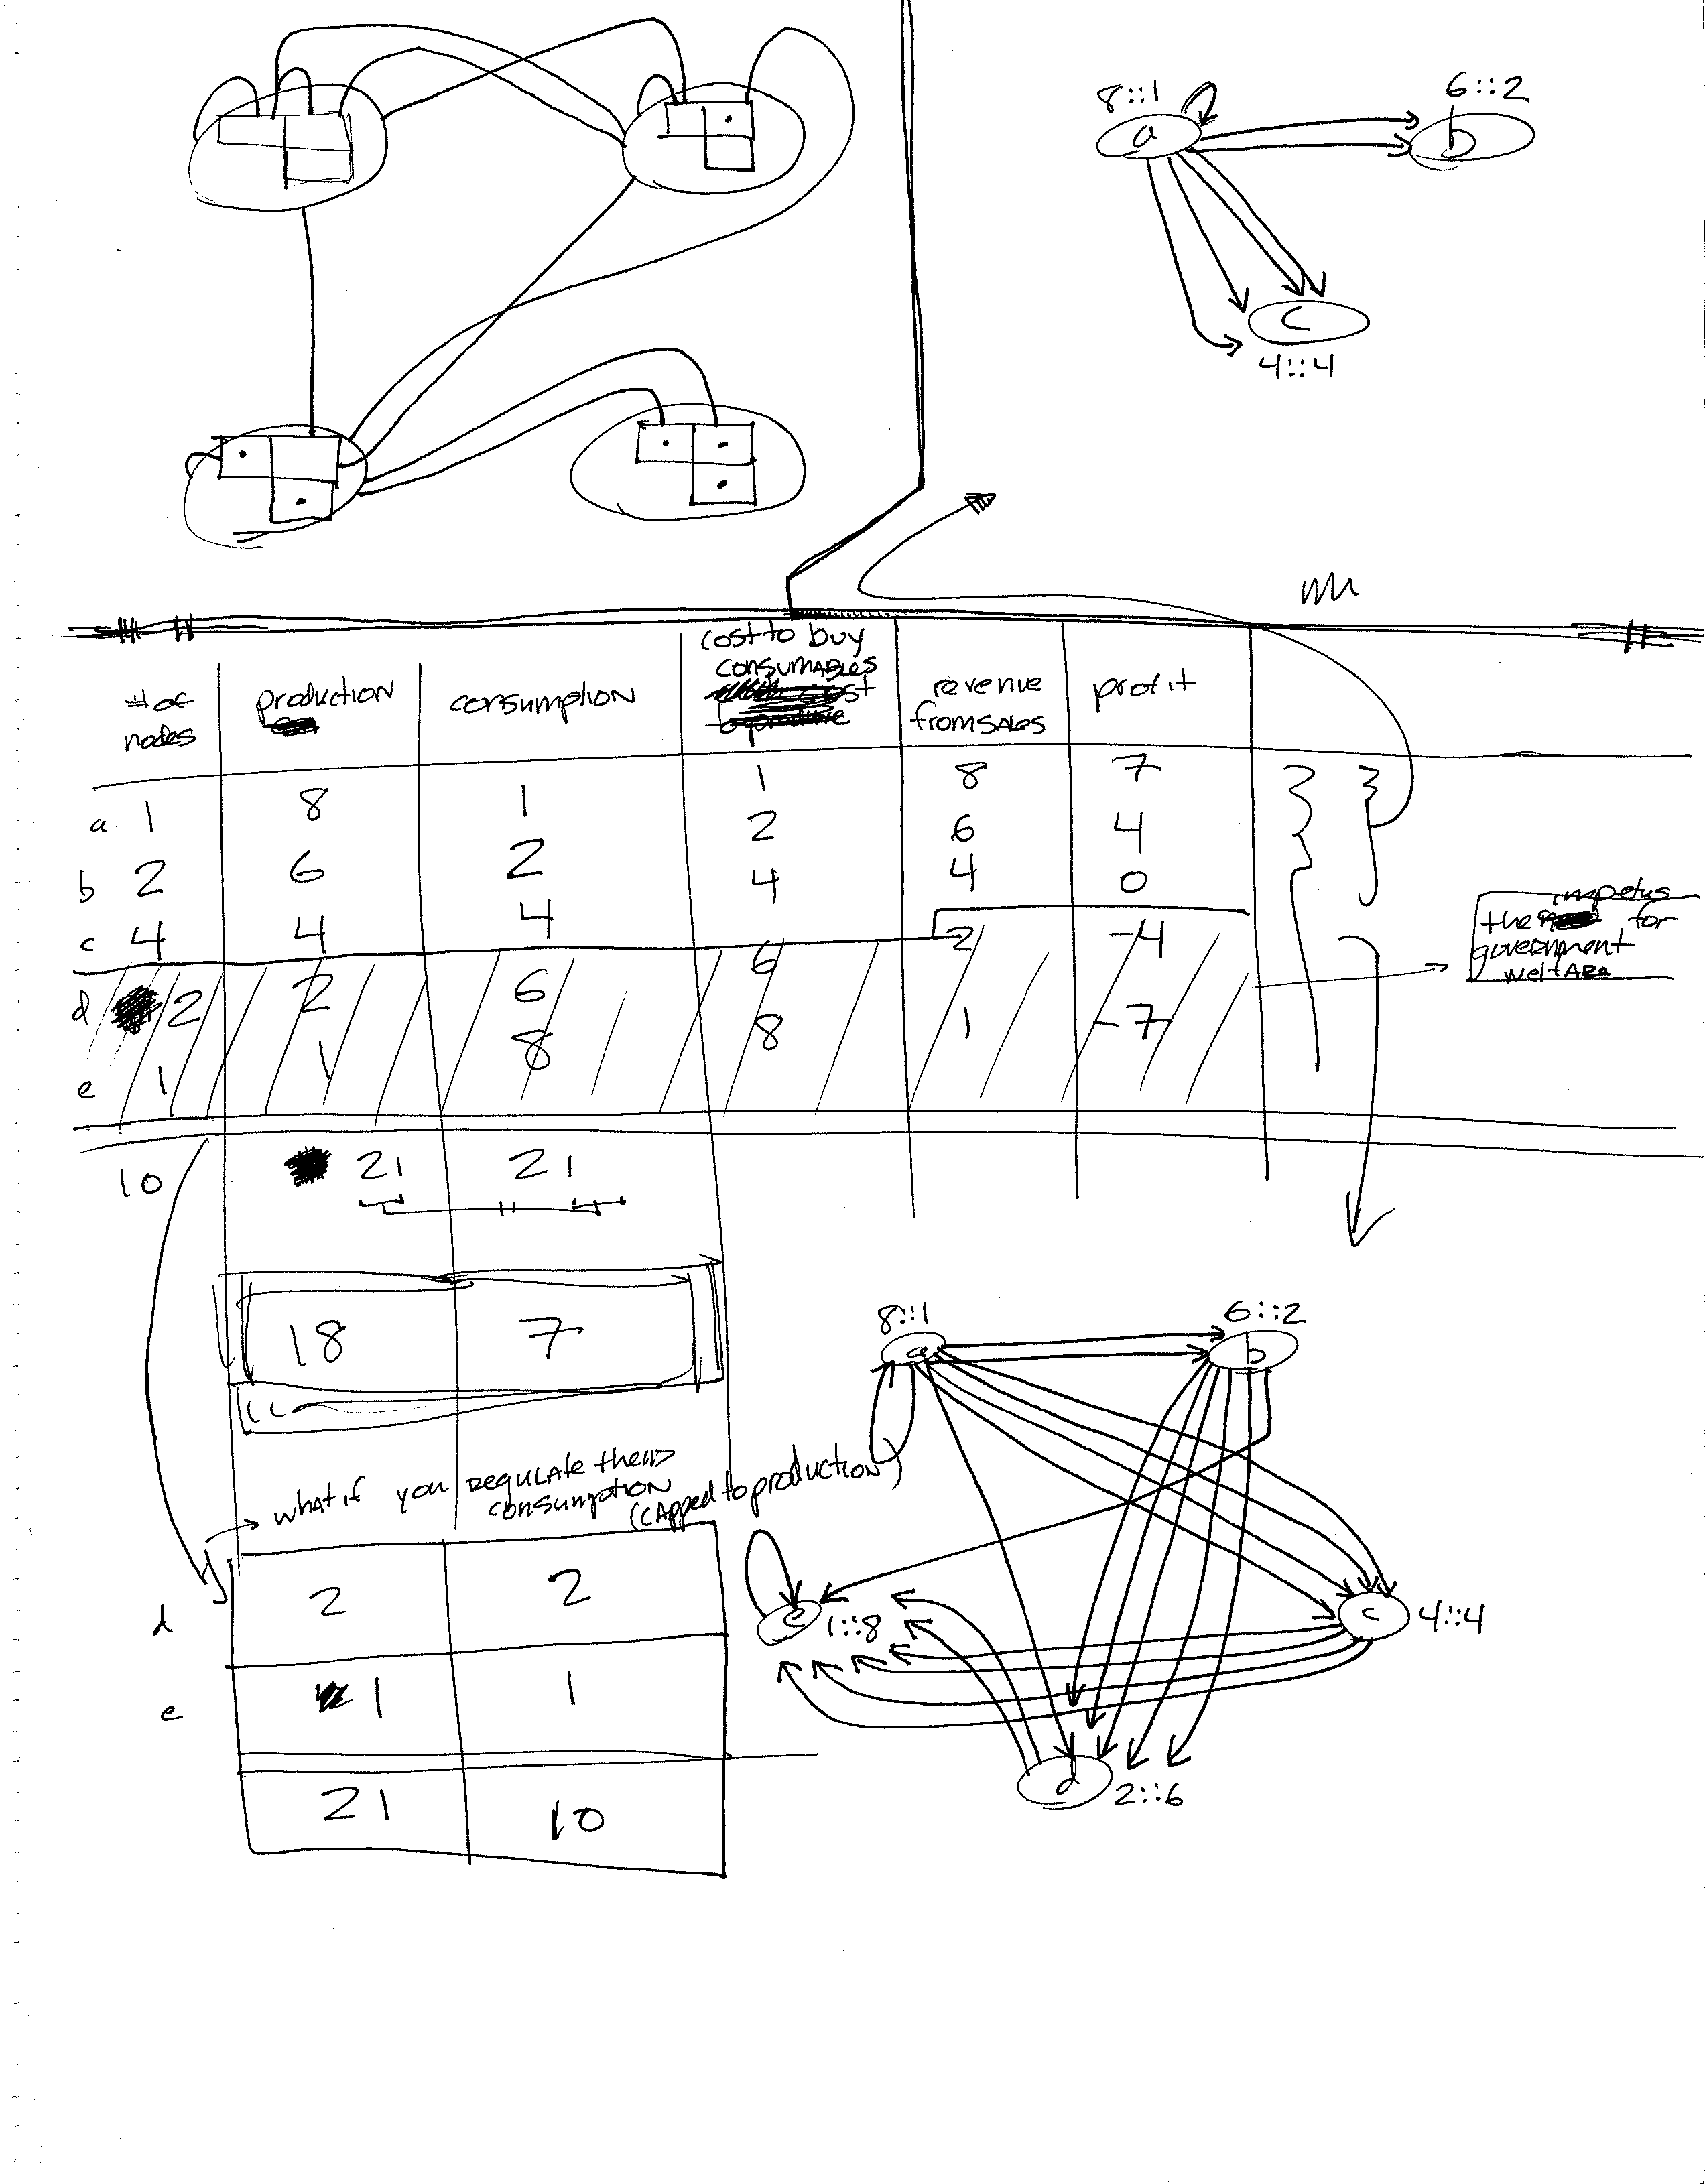 8::1
6::2
a
b
c
4::4
# of nodes
production
consumption
cost to buy
consumables
cost
revenue
from sales
profit
a 1 8 1 1 8 7
b 2 6 2 2 6 4
c 4 4 4 4 4 0
d 2 2 6 6 2 -4
e 1 1 8 8 1 -7
impetus
the for
government
welfare
10 21 21
18 7
what if you regulate their
consumption
(capped to production)
d 2 2
e 1 1
21 10
8::1
6::2
a
b
e
1::8
c
4::4
d
2::6